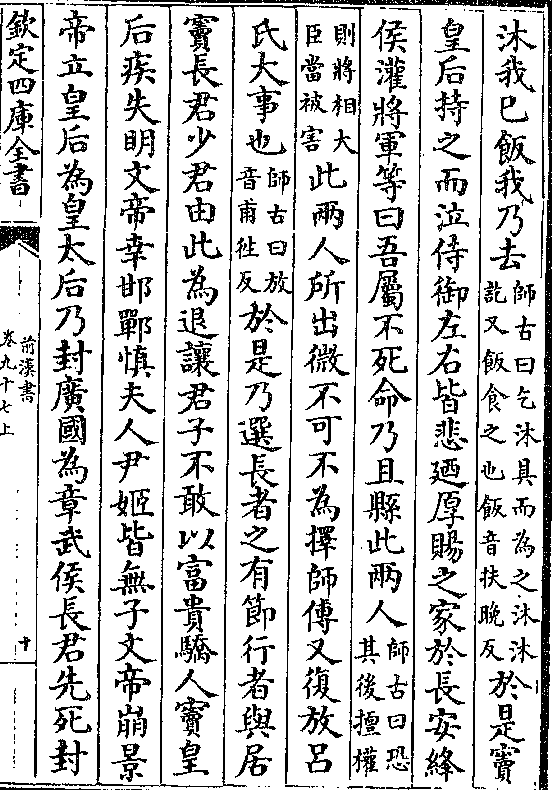 沐我已飯我乃去師古曰乞沐具而為之沐沐訖又飯食之也飯音扶晚反於是竇
皇后持之而泣侍御左右皆悲廼厚賜之家於長安絳
侯灌將軍等曰吾屬不死命乃且縣此兩人師古曰恐其後擅權
則將相大臣當被害此兩人所出微不可不為擇師傅又復放吕
氏大事也師古曰放音甫往反於是乃選長者之有節行者與居
竇長君少君由此為退讓君子不敢以富貴驕人竇皇
后疾失明文帝幸邯鄲慎夫人尹姬皆無子文帝崩景
帝立皇后為皇太后乃封廣國為章武侯長君先死封
欽定四庫全書
前漢書
卷九十七上
十